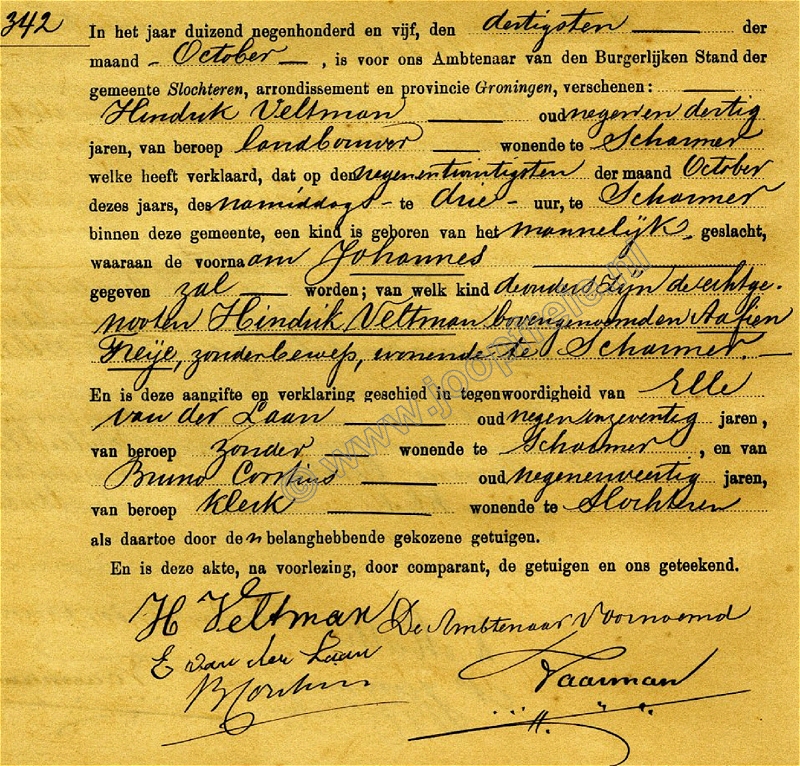 342
In het jaar duizend negenhonderd en vijf, den dertigsten der
maand October, is voor ons Ambtenaar van den Burgerlijken Stand der
gemeente Slochteren, arrondissement en provincie Groningen, verschenen:
Hindrik Veltman oud negen en dertig
jaren, van beroep landbouwer wonende te Scharmer
welke heeft verklaard, dat op den negenentwintigsten der maand October
dezes jaars, des namiddags te drie uur, te Scharmer
binnen deze gemeente, een kind is geboren van het mannelijk geslacht,
waaraan de voornaam Johannes
gegeven zal worden; van welk kind de ouders zijn de echtge-
nooten Hindrik Veltman bovengenoemd en Aafien
Freije, zonder beroep, wonende te Scharmer.
En is deze aangifte en verklaring geschied in tegenwoordigheid van Elle
van der Laan oud negen en zeventig jaren,
van beroep zonder wonende te Scharmer, en van
Bruno oud negenenveertig jaren,
van beroep klerk wonende te Slochteren
als daartoe door den belanghebbende gekozene getuigen.
En is deze akte, na voorlezing, door comparant, de getuigen en ons geteekend.
H Veltman De Ambtenaar Voornoemd
E van der Laan
© www.joopthele.nl